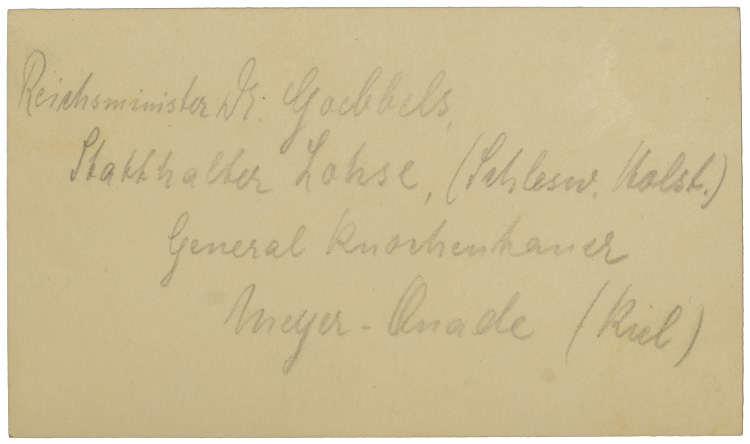 Reichsminister Dr. Goebbels,
Statthalter Lohse, (Schlesw. Holst.)
General Knochenhauer
Meyer-Quade (Kiel)